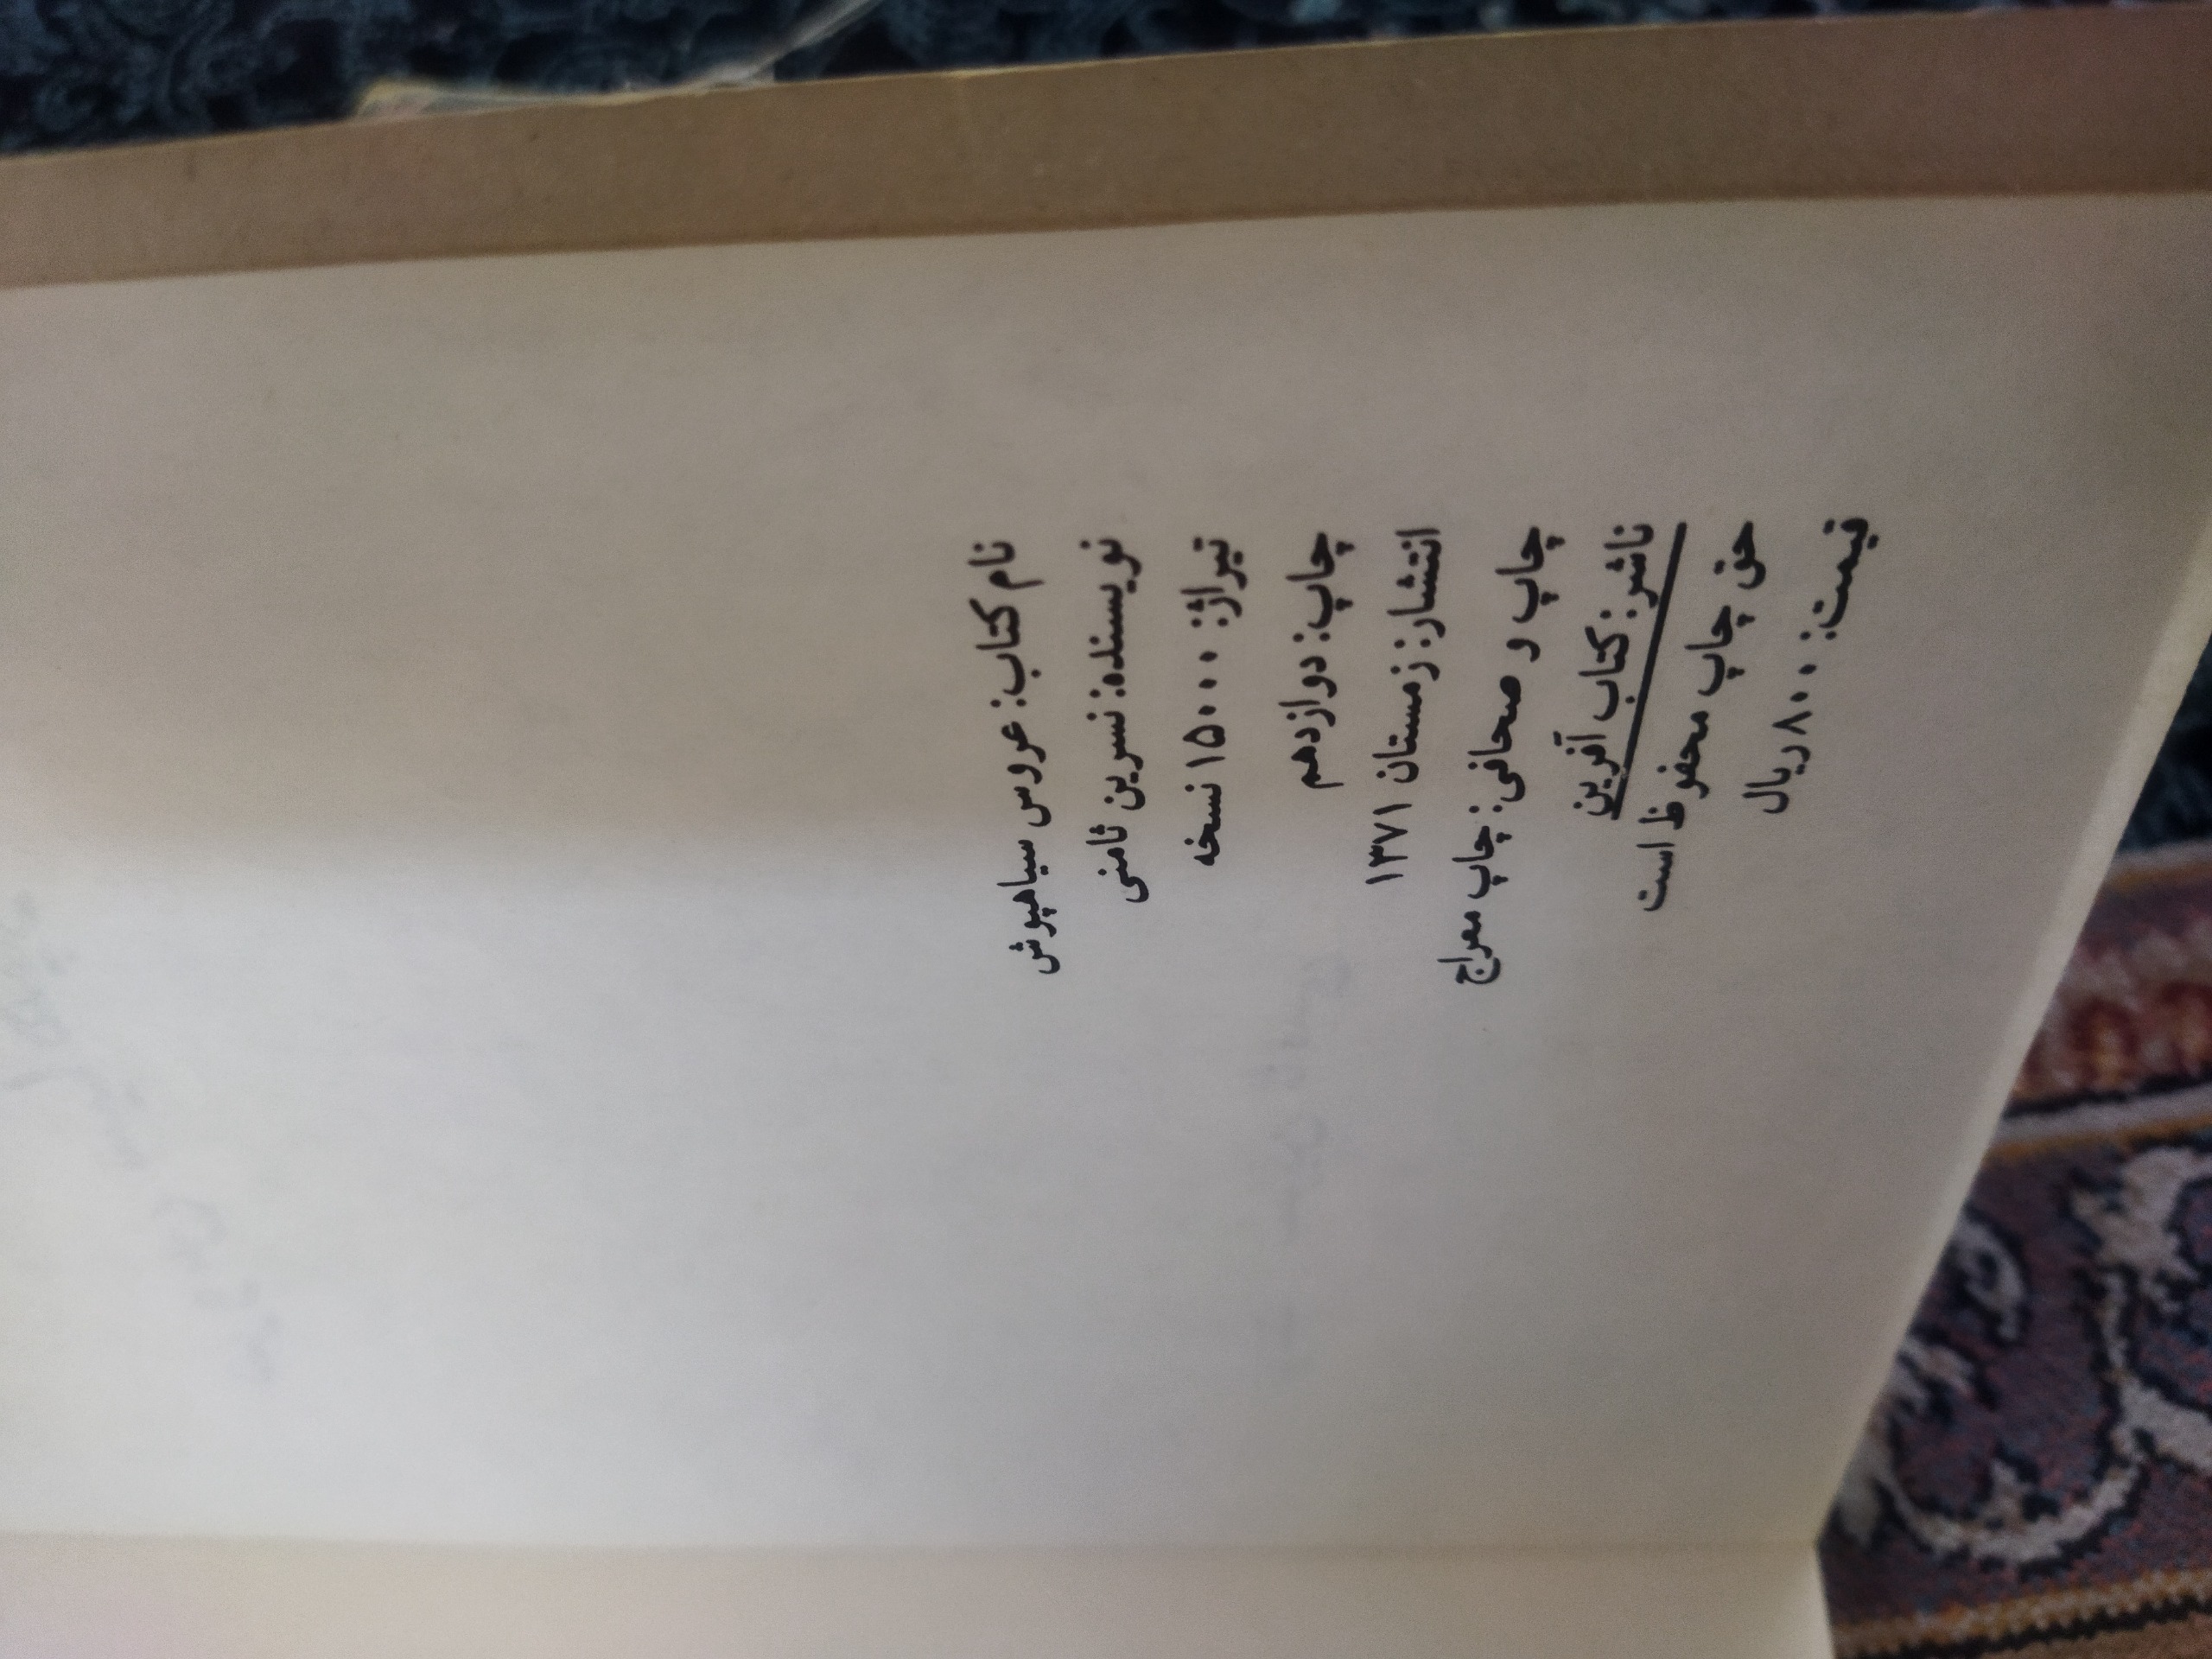 نام کتاب: عروس سیاهپوش
نویسنده: نسرین ثامنی
تیراژ: ۱۵۰۰۰ نسخه
چاپ: دوازدهم
انتشار: زمستان ۱۳۷۱
چاپ و صحافی: چاپ معراج
ناشر: کتاب آفرین
حق چاپ محفوظ است
قیمت: ۸۰۰ ریال